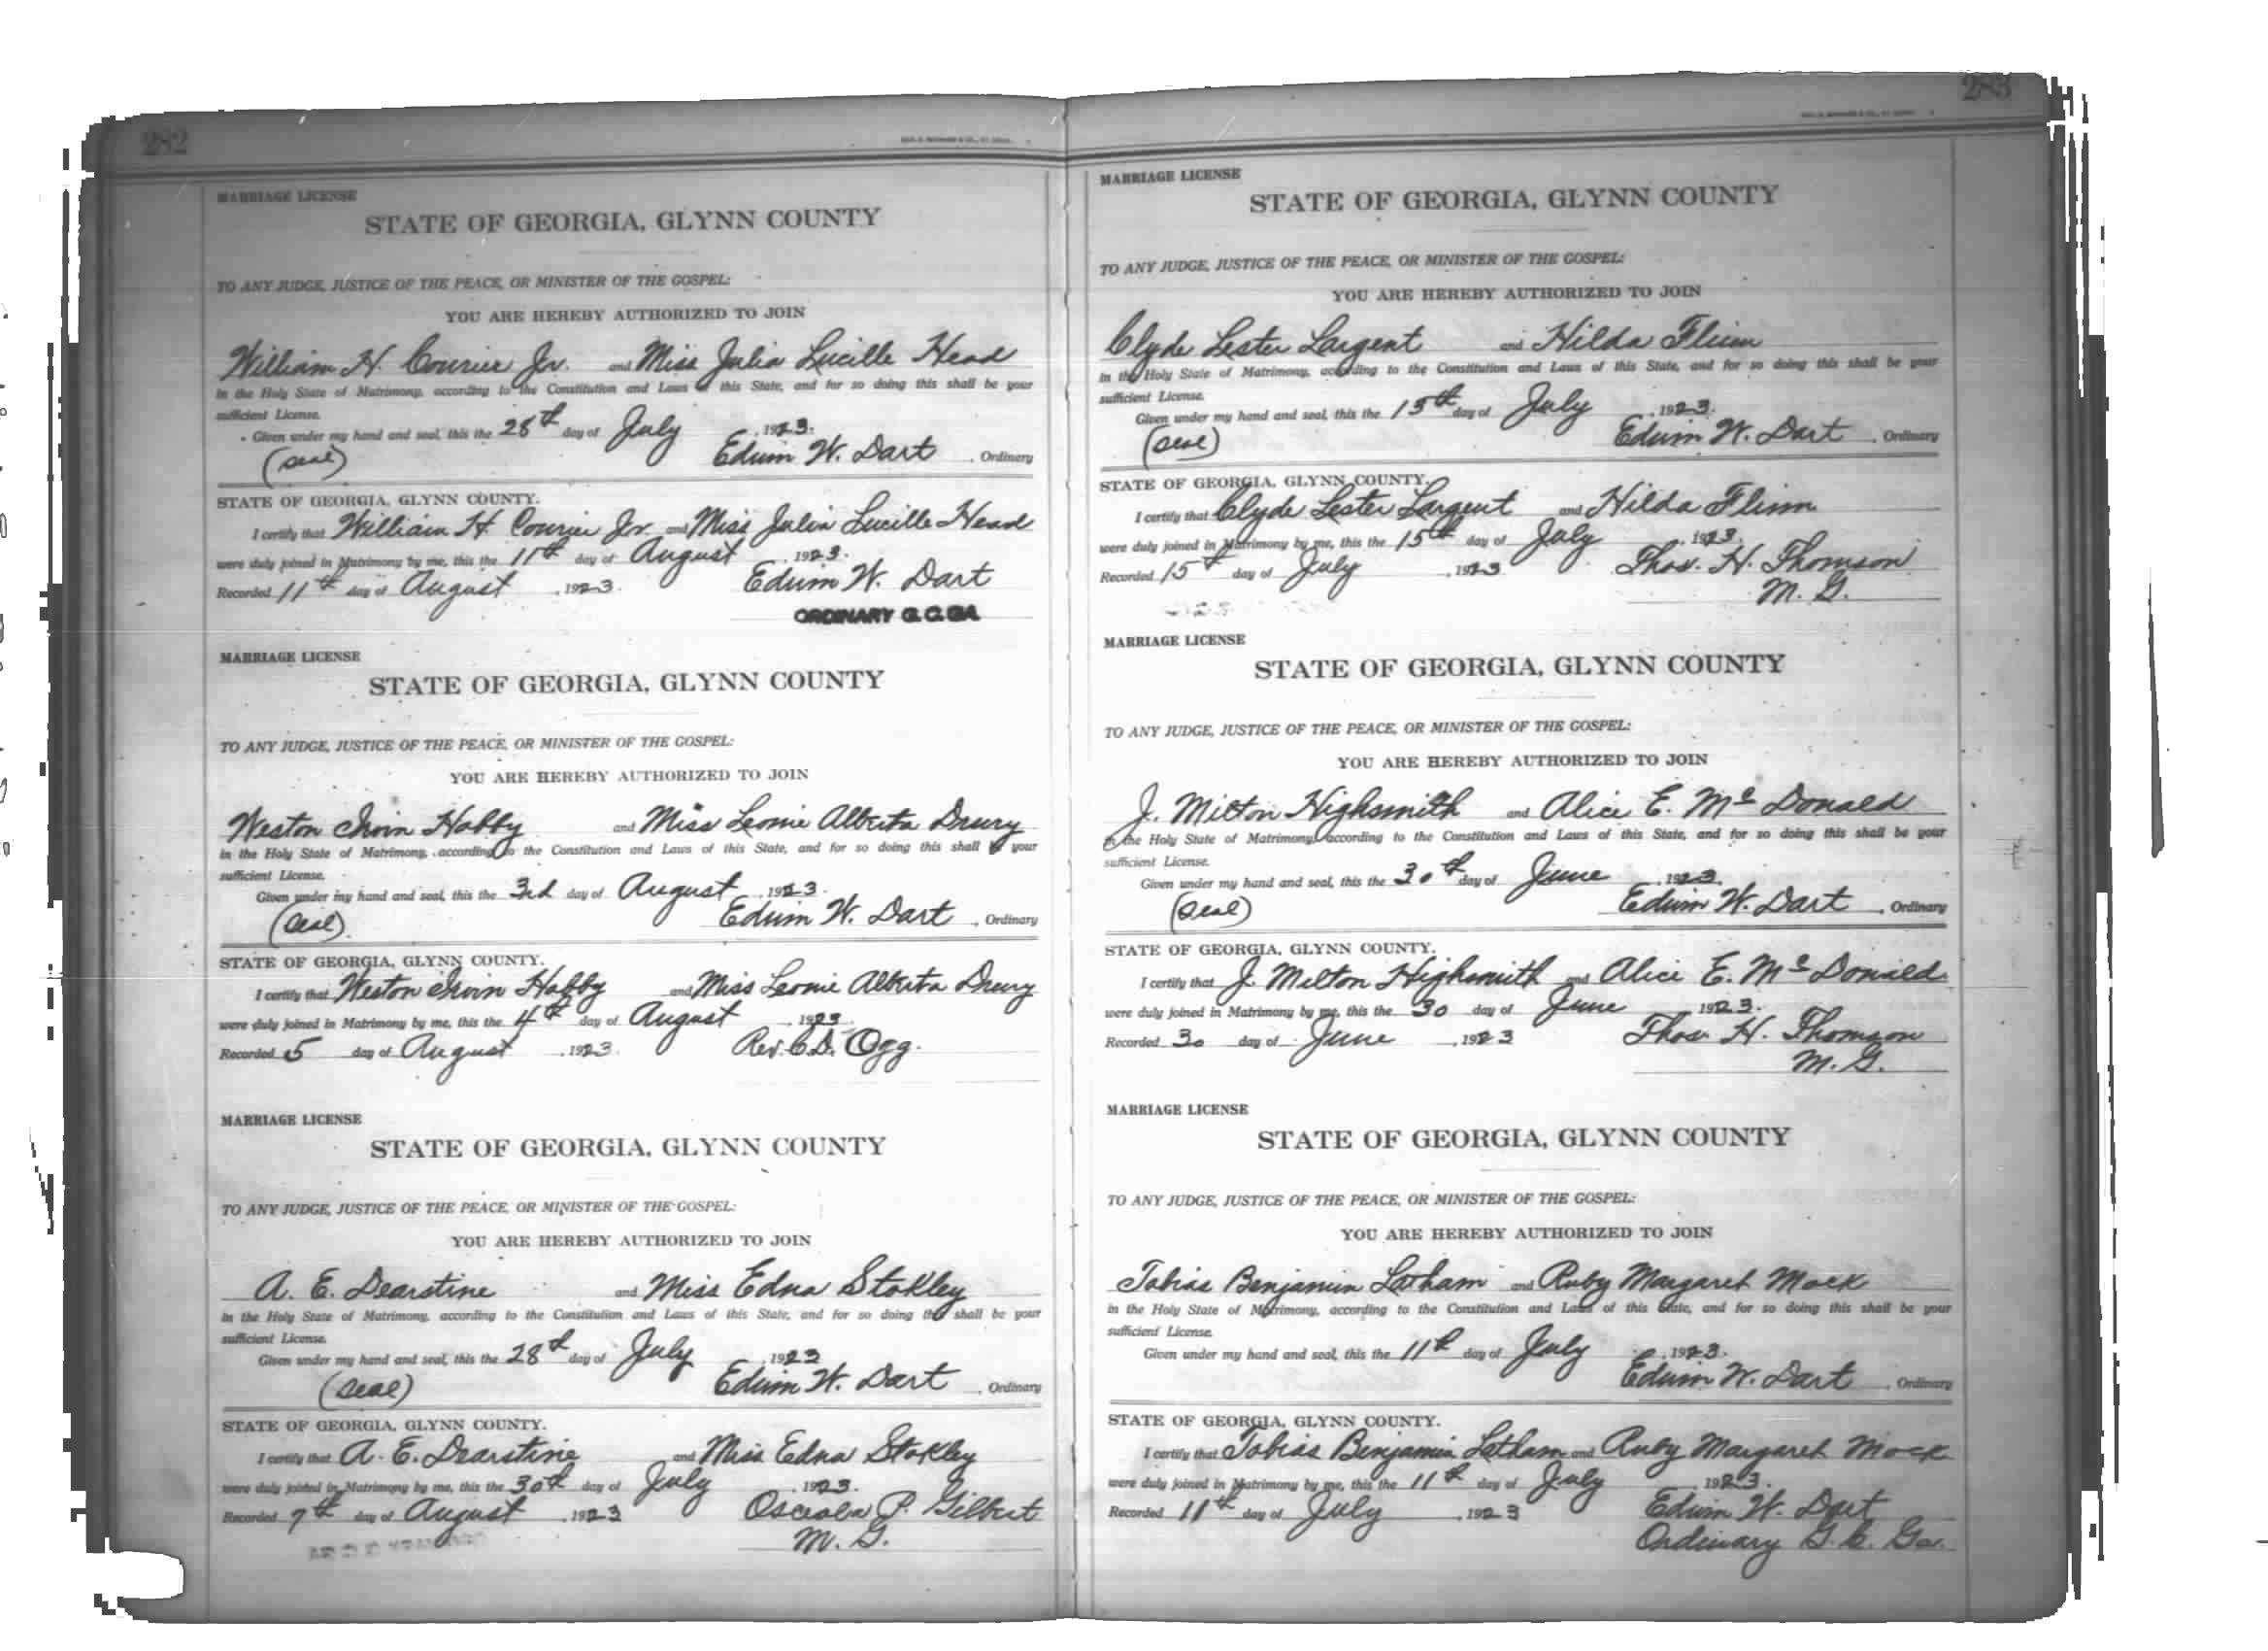 282
MARRIAGE LICENSE
STATE OF GEORGIA, GLYNN COUNTY
TO ANY JUDGE, JUSTICE OF THE PEACE, OR MINISTER OF THE GOSPEL:
YOU ARE HEREBY AUTHORIZED TO JOIN
William H. Courier Jr. and Miss Julia Lucille Head
in the Holy State of Matrimony, according to the Constitution and Laws of this State, and for so doing this shall be your
sufficient License.
Given under my hand and seal, this the 28th day of July, 1923.
(seal) Edwin W. Dart, Ordinary
STATE OF GEORGIA, GLYNN COUNTY.
I certify that William H Courier Jr. and Miss Julia Lucille Head
were duly joined in Matrimony by me, this the 11th day of August, 1923.
Recorded 11th day of August, 1923. Edwin W. Dart
ORDINARY G. C. GA.
MARRIAGE LICENSE
STATE OF GEORGIA, GLYNN COUNTY
TO ANY JUDGE, JUSTICE OF THE PEACE, OR MINISTER OF THE GOSPEL:
YOU ARE HEREBY AUTHORIZED TO JOIN
Weston Irvin Habby and Miss Leonie Alberta Drury
in the Holy State of Matrimony, according to the Constitution and Laws of this State, and for so doing this shall be your
sufficient License.
Given under my hand and seal, this the 3rd day of August, 1923.
(seal) Edwin W. Dart, Ordinary
STATE OF GEORGIA, GLYNN COUNTY.
I certify that Weston Irvin Habby and Miss Leonie Alberta Drury
were duly joined in Matrimony by me, this the 4th day of August, 1923.
Recorded 5 day of August, 1923. Rev. C.D. Ogg.
MARRIAGE LICENSE
STATE OF GEORGIA, GLYNN COUNTY
TO ANY JUDGE, JUSTICE OF THE PEACE, OR MINISTER OF THE GOSPEL:
YOU ARE HEREBY AUTHORIZED TO JOIN
A. E. Dearstine and Miss Edna Stokley
in the Holy State of Matrimony, according to the Constitution and Laws of this State, and for so doing this shall be your
sufficient License.
Given under my hand and seal, this the 28th day of July, 1923
(seal) Edwin W. Dart, Ordinary
STATE OF GEORGIA, GLYNN COUNTY.
I certify that A. E. Dearstine and Miss Edna Stokley
were duly joined in Matrimony by me, this the 30th day of July, 1923.
Recorded 7th day of August, 1923 Osceola P. Gilbert
M. G.
283
MARRIAGE LICENSE
STATE OF GEORGIA, GLYNN COUNTY
TO ANY JUDGE, JUSTICE OF THE PEACE, OR MINISTER OF THE GOSPEL:
YOU ARE HEREBY AUTHORIZED TO JOIN
Clyde Lester Largent and Hilda Flinn
in the Holy State of Matrimony, according to the Constitution and Laws of this State, and for so doing this shall be your
sufficient License.
Given under my hand and seal, this the 15th day of July, 1923.
(seal) Edwin W. Dart, Ordinary
STATE OF GEORGIA, GLYNN COUNTY.
I certify that Clyde Lester Largent and Hilda Flinn
were duly joined in Matrimony by me, this the 15th day of July, 1923.
Recorded 15th day of July, 1923 Thos. H. Thomson
M. G.
MARRIAGE LICENSE
STATE OF GEORGIA, GLYNN COUNTY
TO ANY JUDGE, JUSTICE OF THE PEACE, OR MINISTER OF THE GOSPEL:
YOU ARE HEREBY AUTHORIZED TO JOIN
J. Milton Highsmith and Alice E. McDonald
in the Holy State of Matrimony, according to the Constitution and Laws of this State, and for so doing this shall be your
sufficient License.
Given under my hand and seal, this the 30th day of June, 1923.
(seal) Edwin W. Dart, Ordinary
STATE OF GEORGIA, GLYNN COUNTY.
I certify that J. Milton Highsmith and Alice E. McDonald
were duly joined in Matrimony by me, this the 30 day of June, 1923.
Recorded 30 day of June, 1923 Thos. H. Thomson
M. G.
MARRIAGE LICENSE
STATE OF GEORGIA, GLYNN COUNTY
TO ANY JUDGE, JUSTICE OF THE PEACE, OR MINISTER OF THE GOSPEL:
YOU ARE HEREBY AUTHORIZED TO JOIN
Tobias Benjamin Latham and Ruby Margaret Mock
in the Holy State of Matrimony, according to the Constitution and Laws of this State, and for so doing this shall be your
sufficient License.
Given under my hand and seal, this the 11th day of July, 1923.
Edwin W. Dart, Ordinary
STATE OF GEORGIA, GLYNN COUNTY.
I certify that Tobias Benjamin Latham and Ruby Margaret Mock
were duly joined in Matrimony by me, this the 11th day of July, 1923.
Recorded 11th day of July, 1923 Edwin W. Dart
Ordinary G. C. Ga.